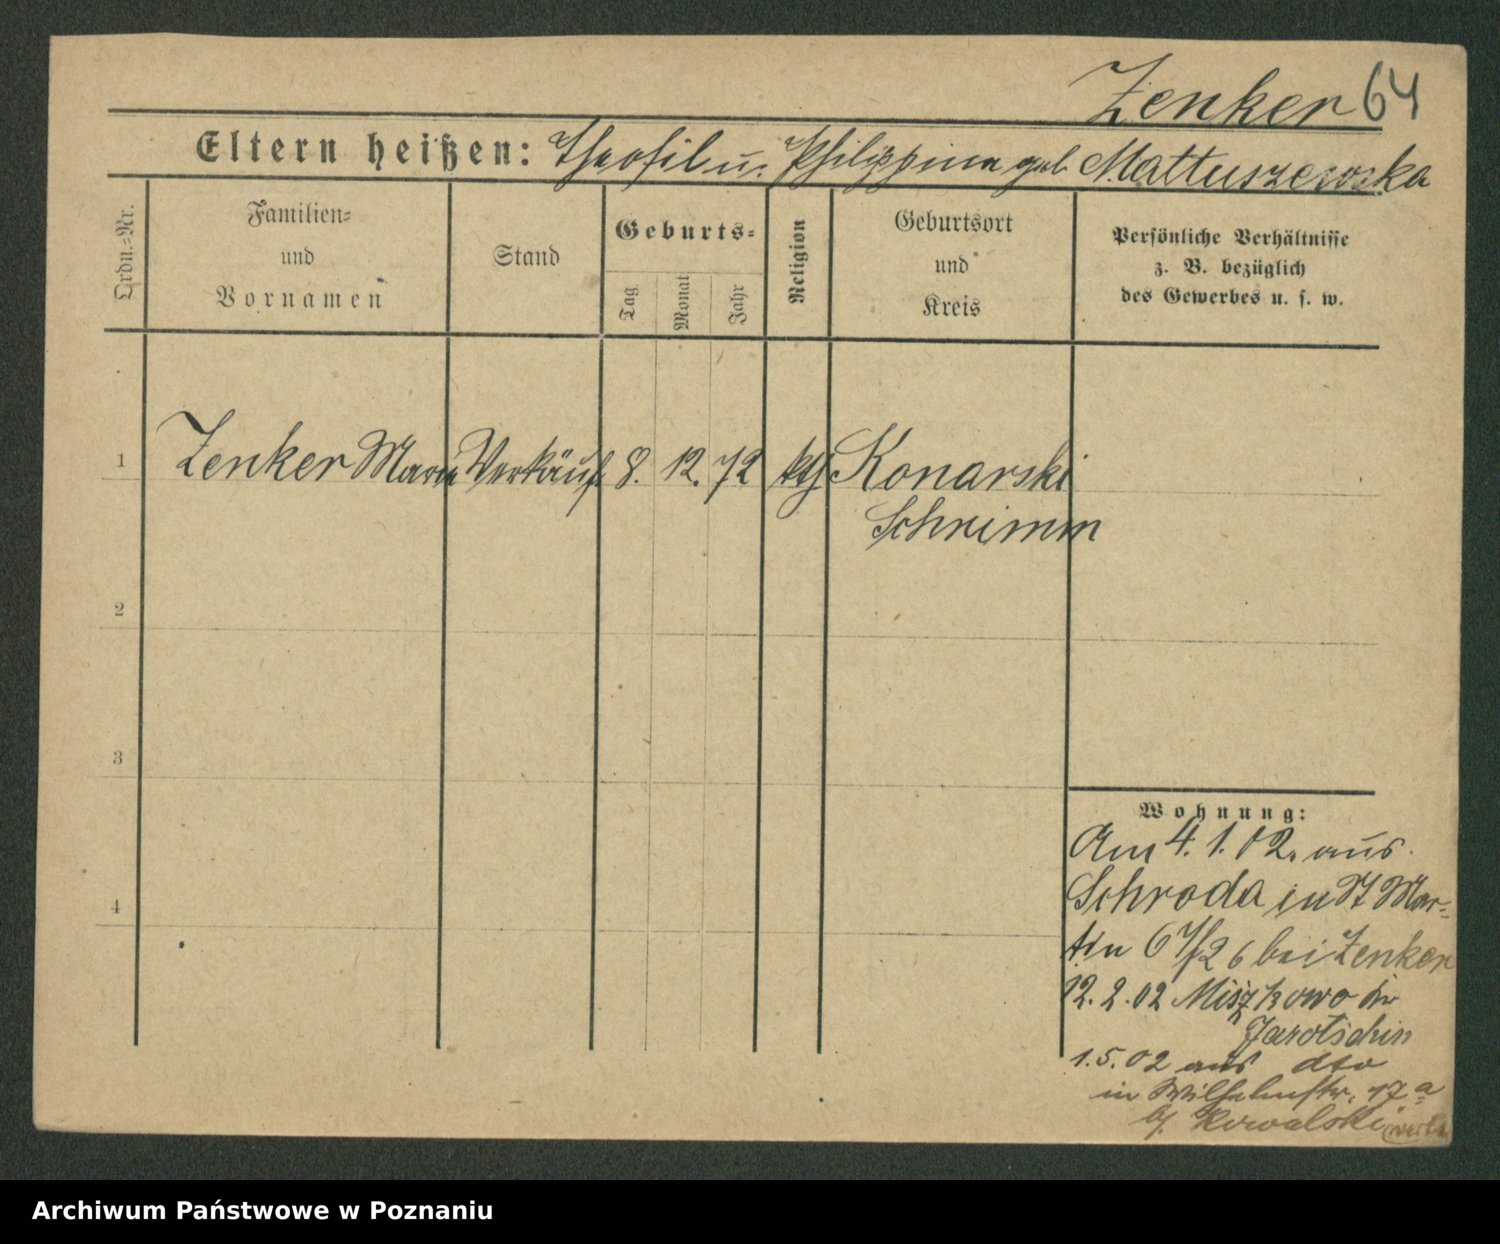 Zenker 64
Eltern heißen: Theofil u. Philippina geb. Mattuszewska
Ordn.=Nr.
Familien=
und
Vornamen
Stand
Geburts=
Tag
Monat
Jahr
Religion
Geburtsort
und
Kreis
Persönliche Verhältnisse
z. B. bezüglich
des Gewerbes u. s. w.
1 Zenker Marie Verkäuf. 8. 12. 72 kth Konarski
Schrimm
2
3
4
Wohnung:
Am 4. 1. 02. aus
Schroda in St Mar=
tin 67/26 bei Zenker
12. 2. 02 Miszkowo
Jarotschin
1. 5. 02 aus dto
in Wilhelmstr. 17a
b/. Kowalski
Archiwum Państwowe w Poznaniu